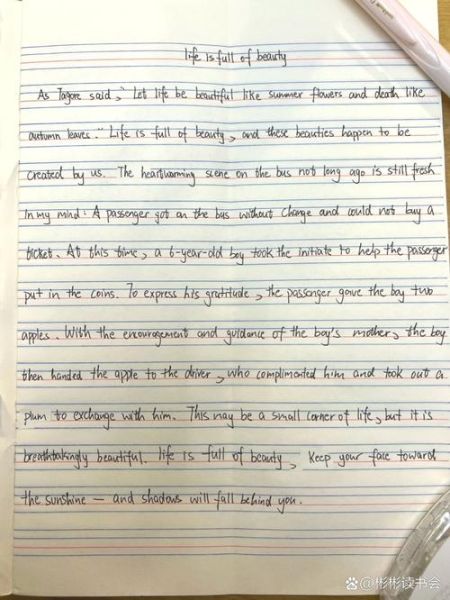 life is full of beauty
As Tagore said, "Let life be beautiful like summer flowers and death like
autumn leaves." Life is full of beauty, and these beauties happen to be
created by us. The heartwarming scene on the bus not long ago is still fresh
in my mind: A passenger got on the bus without change and could not buy a
ticket. At this time, a 6-year-old boy took the initiate to help the passenger
put in the coins. To express his gratitude, the passenger gave the boy two
apples. With the encouragement and guidance of the boy's mother, the boy
then handed the apple to the driver, who complimented him and took out a
plum to exchange with him. This may be a small corner of life, but it is
breathtakingly beautiful. life is full of beauty, Keep your face toward
the sunshine — and shadows will fall behind you.
@彬彬读书会